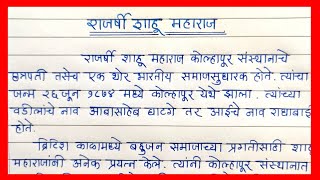 राजर्षी शाहू महाराज
राजर्षी शाहू महाराज कोल्हापूर संस्थानाचे
छत्रपती तसेच एक थोर भारतीय समाजसुधारक होते. त्यांचा
जन्म २६ जून १८७४ मध्ये कोल्हापूर येथे झाला. त्यांच्या
वडीलांचे नाव आबासाहेब घाटगे तर आईचे नाव राधाबाई
होते.
ब्रिटिश काळामध्ये बहुजन समाजाच्या प्रगतीसाठी शाहू
महाराजांनी अनेक प्रयत्न केले. त्यांनी कोल्हापूर संस्थानात